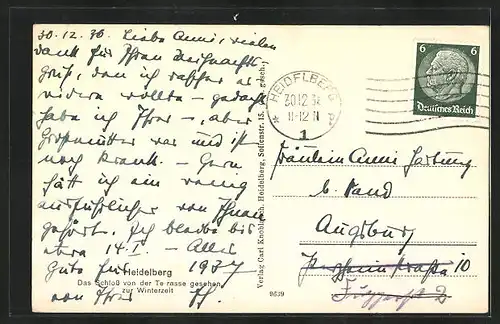 30.12.36. Liebe Anni, vielen
Dank für Ihren Weihnachts
gruß, den ich
wollte – gedacht
habe ich Ihrer –, aber
Großmutter war und ist
noch krank. – Gern
hätt ich ein wenig
ausführlicher von Ihnen
gehört. Ich bleibe bis
etwa 14.I. – Alles
Gute für 1937
von Ihrer
Heidelberg
Das Schloß von der Terrasse gesehen
zur Winterzeit
Verlag Carl Knoblauch, Heidelberg, Seffenstr. 15. gesch.
9639
HEIDELBERG
30.12.36
11-12 N
1
6 6
Deutsches Reich
Fräulein Anni Hartung
b. Kand
Augsburg
10
2